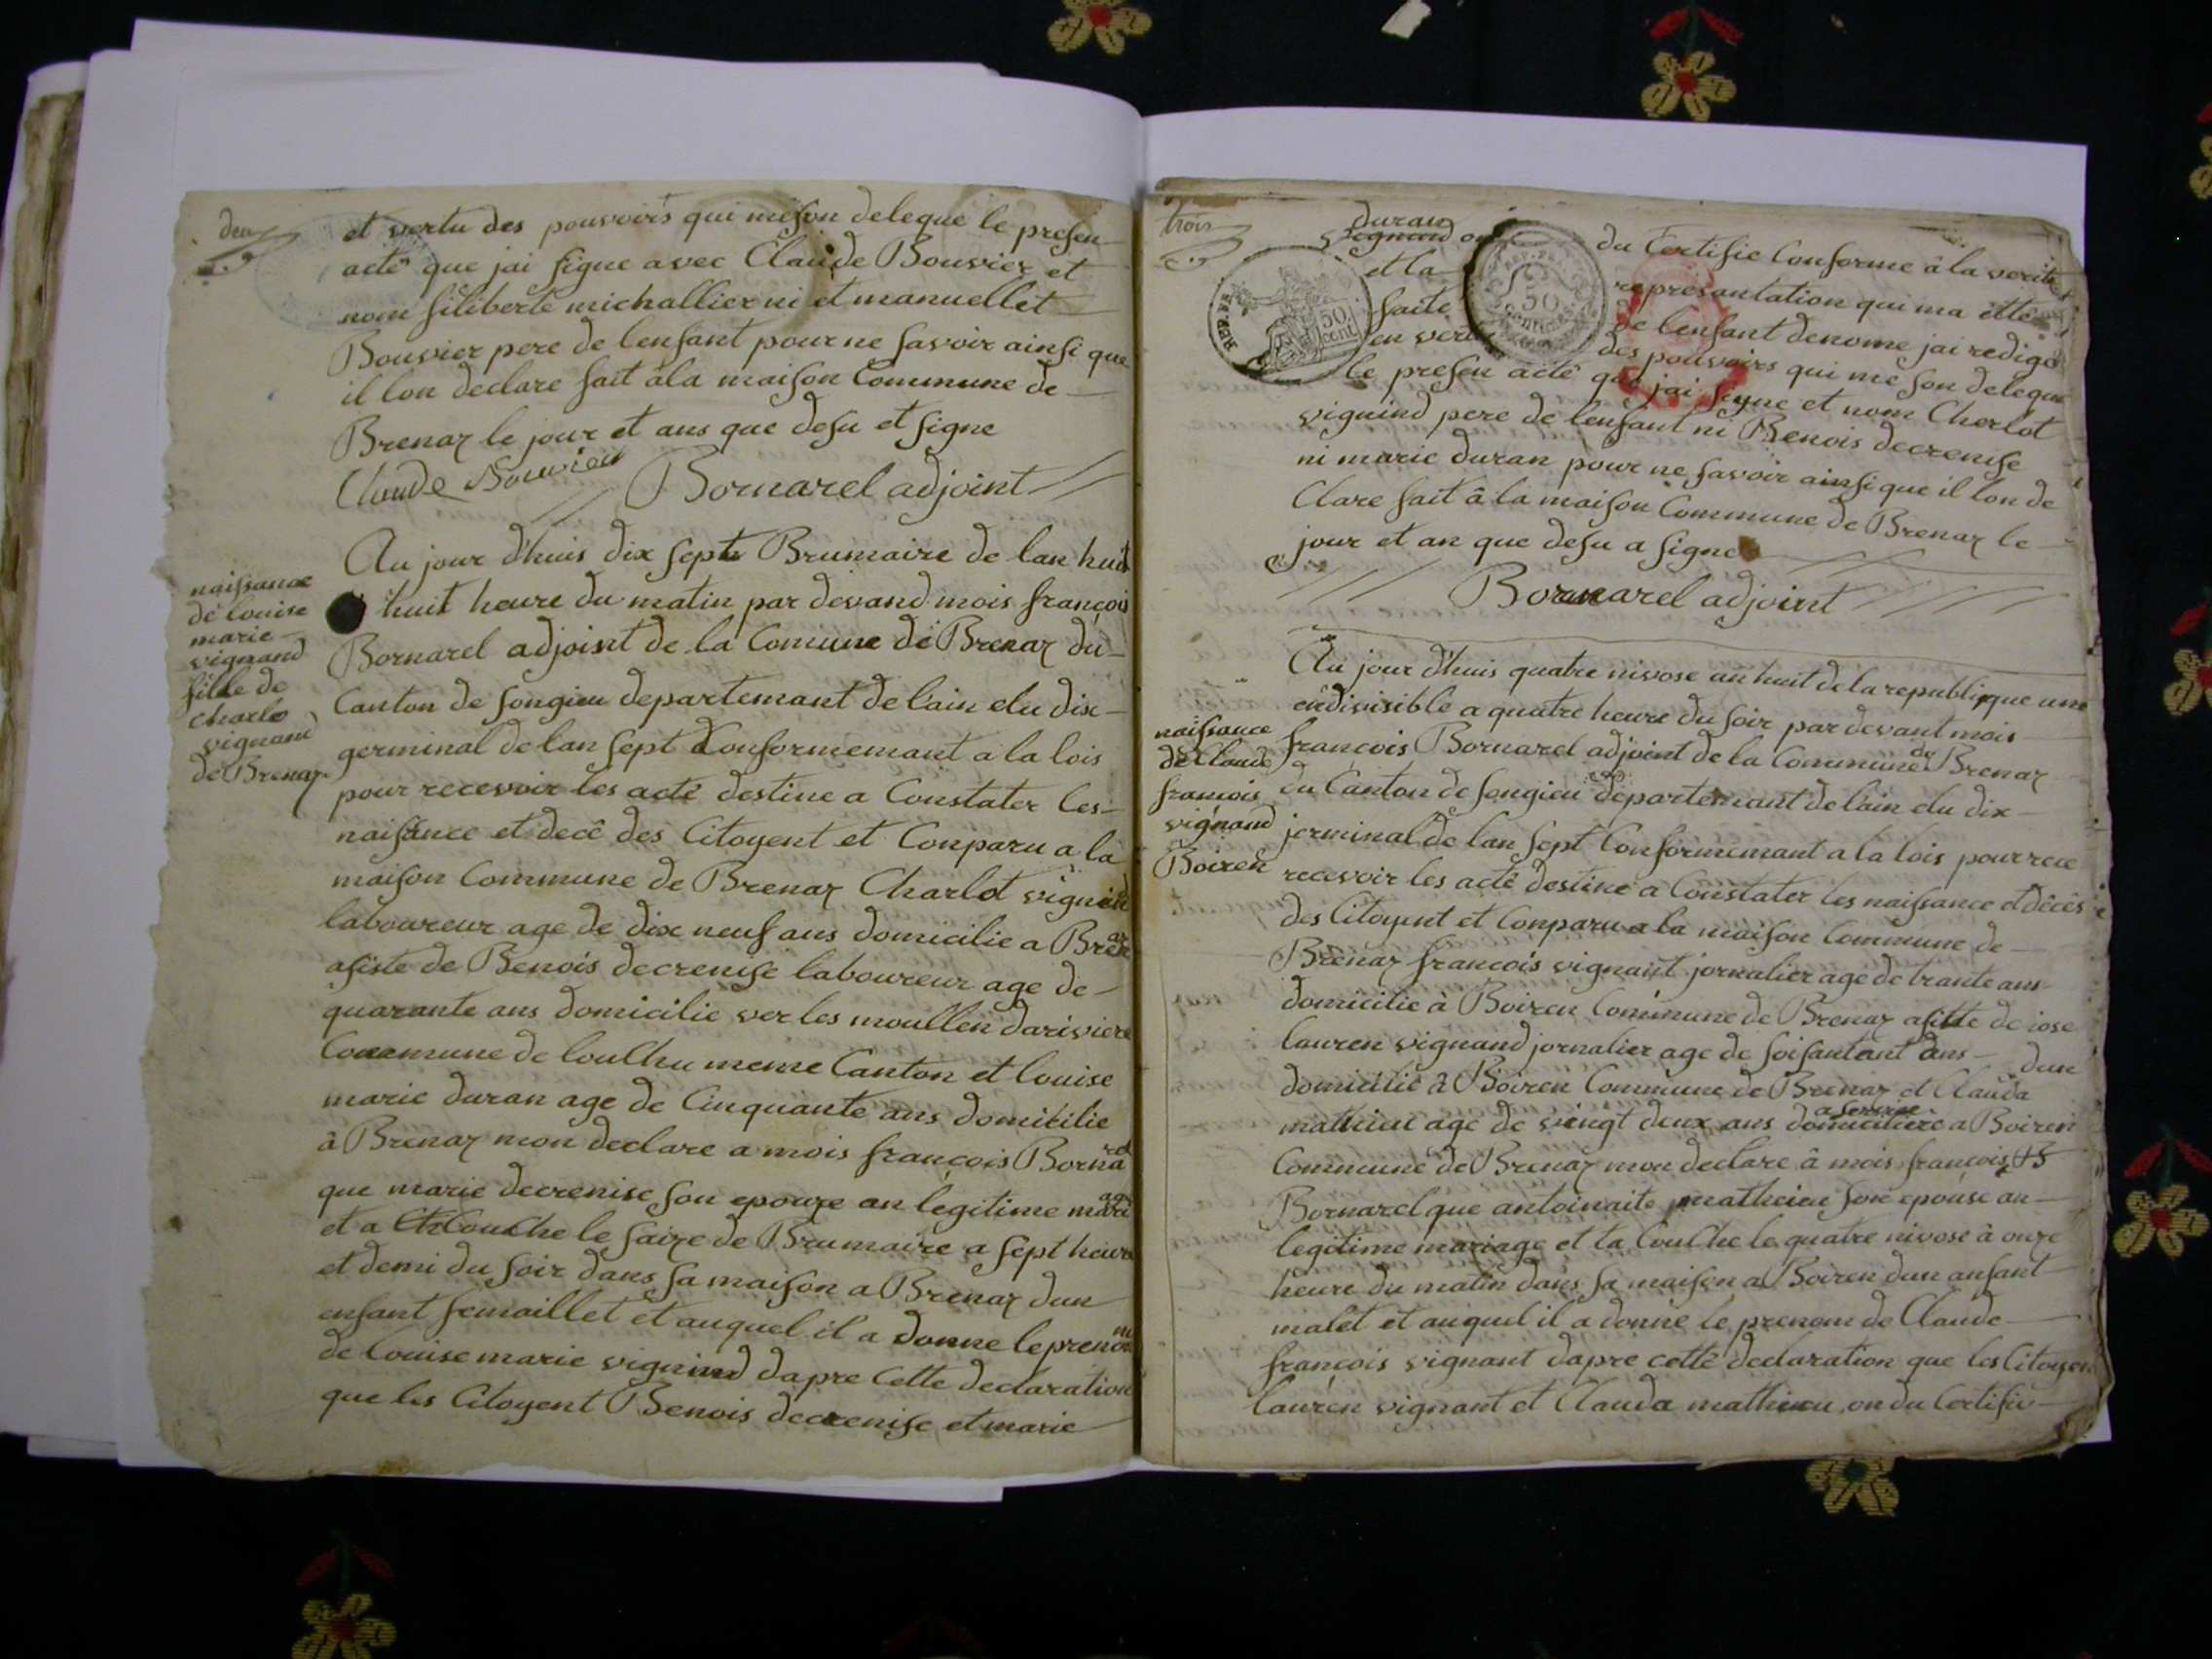 deux
et vertu des pouvoirs qui mi son deleque le presen
acte que jai signe avec Claude Bouvier et
nom filiberte michallier ni et manuellet
Bouvier pere de lenfant pour ne savoir ainsi que
il lon declare fait àla maison Commune de
Brenaz le jour et ans que desu et signe
Claude Bouvier
Bornarel adjoint
naissance
de louise
marie
vignand
fille de
charle
vignand
de Brenaz
Au jour d'huis dix sept Brumaire de lan huit
huit heure du matin par devand mois françois
Bornarel adjoint de la Comune de Brenaz du
Canton de songieu departemant de lain elu dix
germinal de lan sept Conformemant a la lois
pour recevoir les acte destine a Constater les
naissance et decê des Citoyent et Conparu a la
maison Commune de Brenaz Charlot vignind
laboureur age de dix neuf ans domicilie a Brenaz
asiste de Benois decrenise laboureur age de
quarante ans domicilie ver les moullen dariviere
Commune de loulhu meme Canton et louise
marie duran age de Cinquante ans domikilie
à Brenaz mon declare a mois françois Bornarel
que marie decrenise son epouze an legitime mariage
et a Couche le saize de Brumaire a sept heure
et demi du soir dans sa maison a Brenaz dun
enfant femaillet et auquel il a donne le prenom
de louise marie vignind dapre Cette declaration
que les Citoyent Benois decrenise et marie
trois
duran
vignand on du Certifie Conforme à la verite
et la represantation qui ma ette
faite de lenfant denome jai redige
en vertu des pouvoirs qui me son deleque
le presen acte que jai signe et nom Cherlot
vignind pere de lenfant ni Benois decrenise
ni marie duran pour ne savoir ainsi que il lon de
Clare fait â la maison Commune de Brenaz le
jour et an que desu a signe
Bornarel adjoint
REP. FRA.
50
cent.
50
centimes
naissance
de Claude
francois
vignand
Boiren
Au jour d'huis quatre nivose an huit de la republique une
endivisible a quatre heure du soir par devant mois
françois Bornarel adjoint de la Commune de Brenaz
du Canton de songieu departemant de lain elu dix
jerminal de lan sept Conformemant a la lois pour rece
recevoir les acte destine a Constater les naissance et décès
des Citoyent et Conparu a la maison Commune de
Brenaz francois vignant jornalier age de trante ans
domicilie à Boiren Commune de Brenaz asitte de iose
lauren vignand jornalier age de soisantent dans
dun
domicilie à Boiren Commune de Brenaz et Clauda
mathieu age de vingt deux ans domiciliere a Boiren
Commune de Brenaz mon declare à mois françois B
Bornarel que antoinaite mathieu son epouse an
legitime mariage et ta Couche le quatre nivose à onze
heure du matin dans sa maison a Boiren dun anfant
malet et auquel il a donne le prenom de Claude
françois vignant dapre cette declaration que les Citoyen
lauren vignant et Clauda mathieu on du Certifie